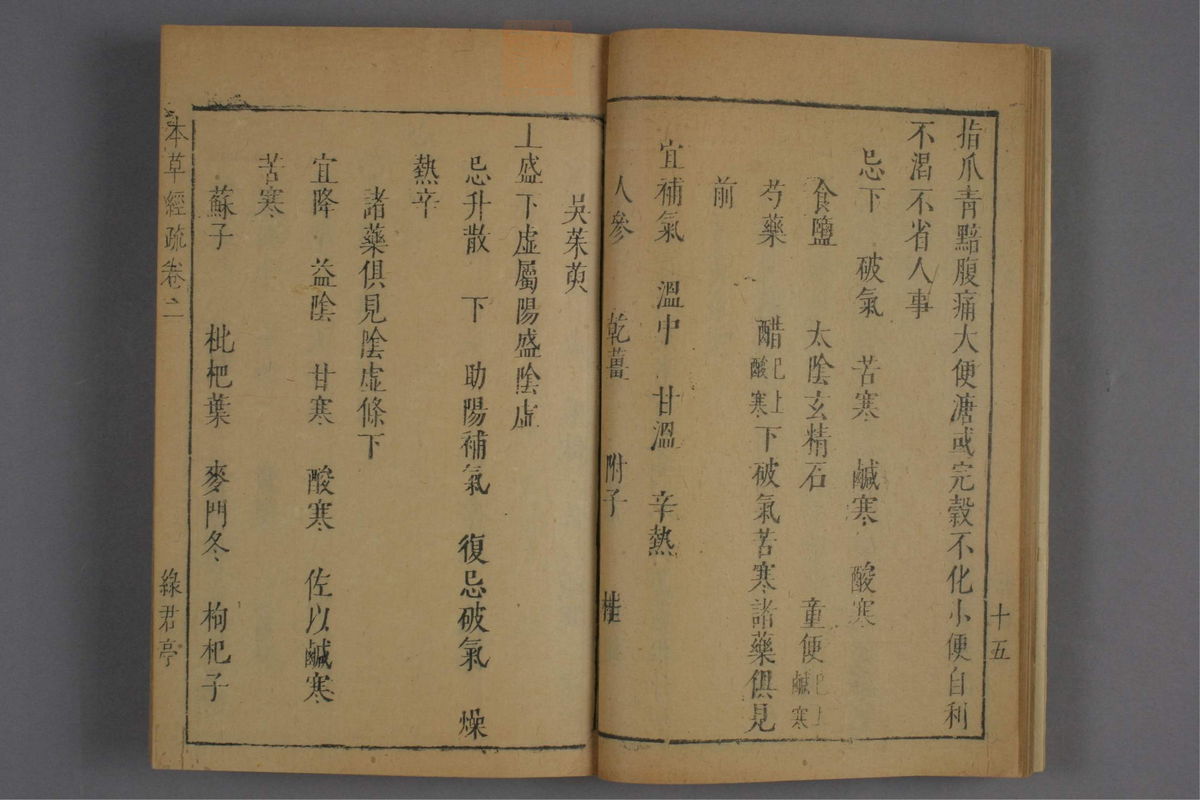 十五
指爪青黯腹痛大便溏或完穀不化小便自利
不渴不省人事
忌下　破氣　苦寒　鹹寒　酸寒
食鹽　太陰玄精石　童便已上鹹寒
芍藥　醋已上酸寒下破氣苦寒諸藥俱見
前
宜補氣　溫中　甘溫　辛熱
人參　乾薑　附子　桂
吳茱萸
上盛下虛屬陽盛陰虛
忌升散　下　助陽補氣　復忌破氣　燥
熱辛
諸藥俱見陰虛條下
宜降　益陰　甘寒　酸寒　佐以鹹寒
苦寒
蘇子　枇杷葉　麥門冬　枸杞子
本草經疏卷二　綠君亭